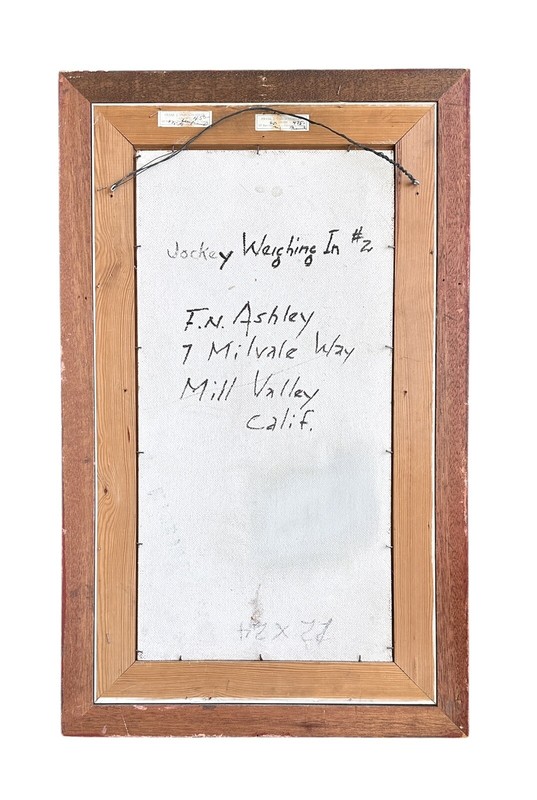 Jockey Weighing In #2
F.N. Ashley
7 Milvale Way
Mill Valley
Calif.